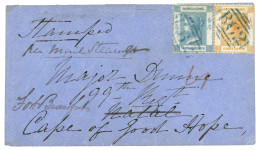 Stamped
per Mail Steamer
Major Dunne
99th Regt
Natal
Cape of Good Hope,